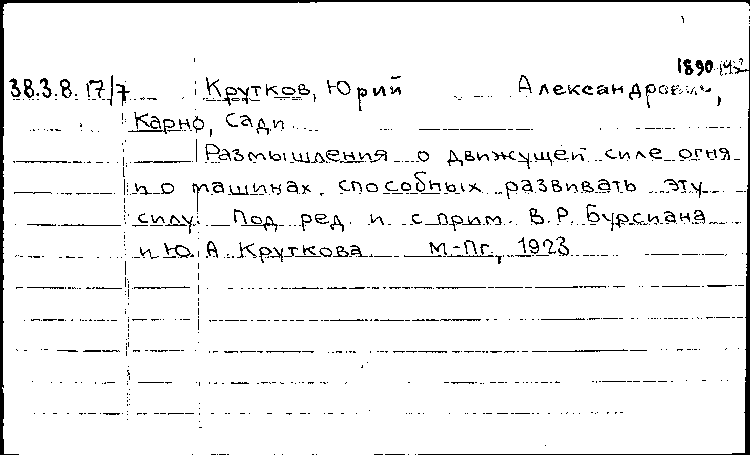 1890-1952
38.3.8.17/7 Крутков, Юрий Александрович,
Карно, Сади
Размышления о движущей силе огня
и о машинах, способных развивать эту
силу. Под ред. и с прим. В.Р. Бурсиана
и Ю.А. Круткова М-Пг., 1923